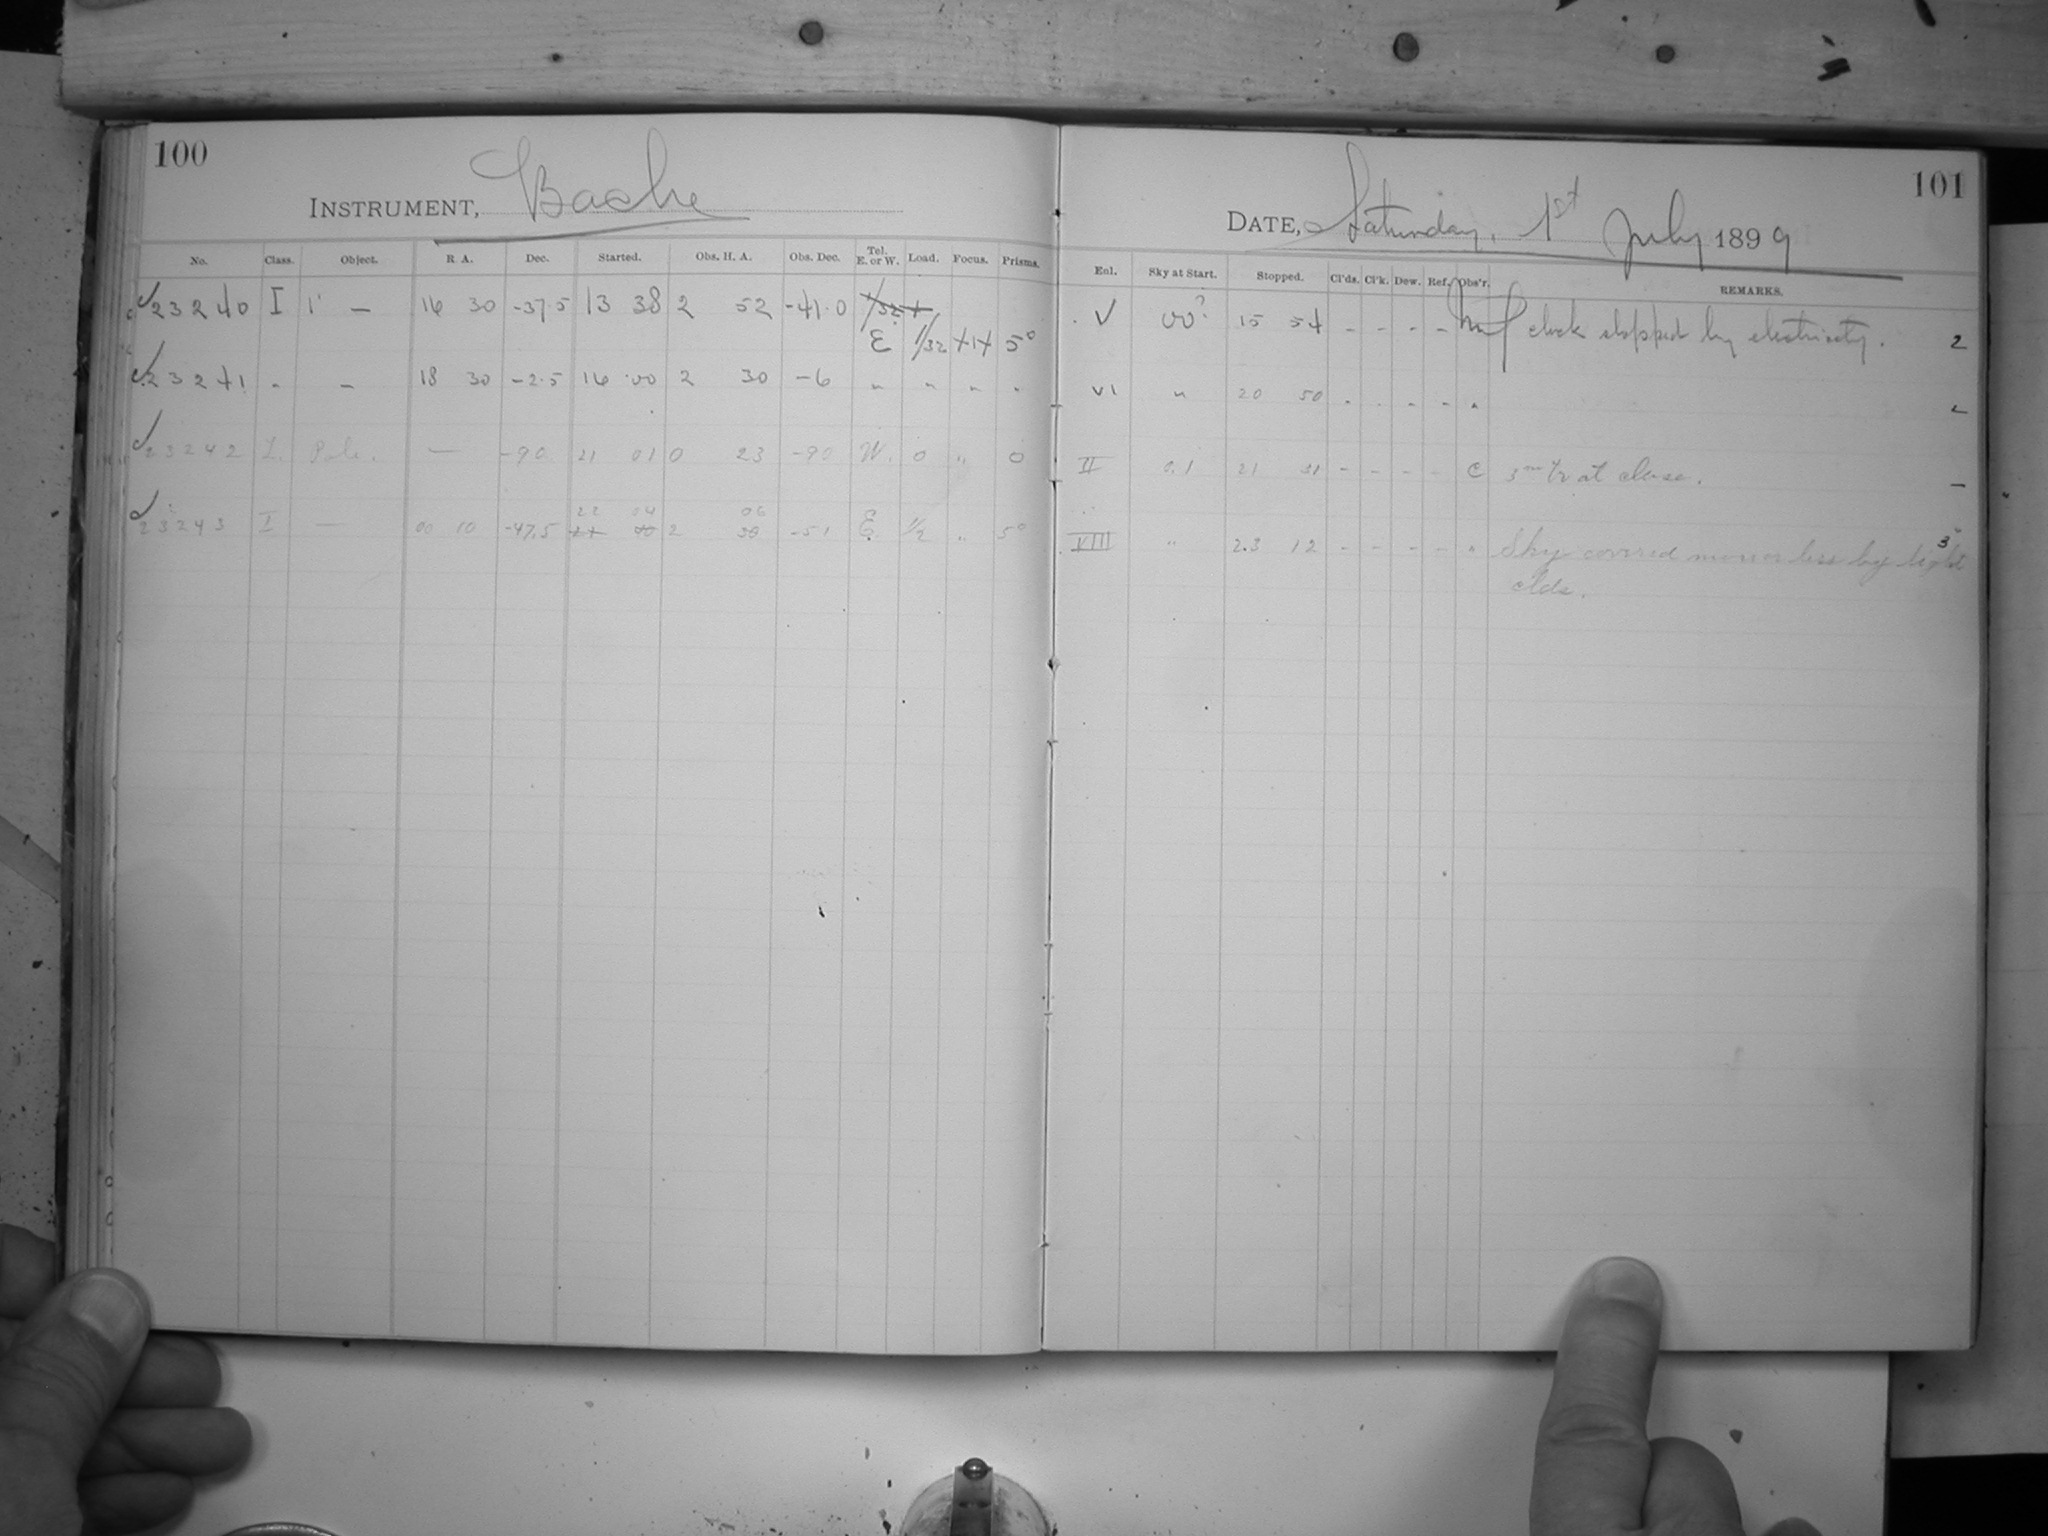 100
INSTRUMENT, Bache
No. Class. Object. R A. Dec. Started. Obs. H. A. Obs. Dec. Tel. E. or W. Load. Focus. Prisms.
23240 I 1' — 16 30 -37.5 13 38 2 52 -41.0
E 1/32 5°
23241 " — 18 30 -2.5 16 00 2 30 -6 " " " "
23242 L. Pole. — -90 21 01 0 23 -90 W. 0 " 0
22 04 06
23243 I — 00 10 -47.5 2 -51 E 1/2 " 5°
101
DATE, Saturday, 1st July 1899
Enl. Sky at Start. Stopped. Cl'ds. Cl'k. Dew. Ref. Obs'r. REMARKS.
V 00? 15 54 - - - - clock stopped by electricity. 2
VI " 20 50 " " " " "
II 0.1 21 31 - - - - C 3m tr at close. —
VIII " 23 12 - - - - " Sky covered more or less by light 3
clds.